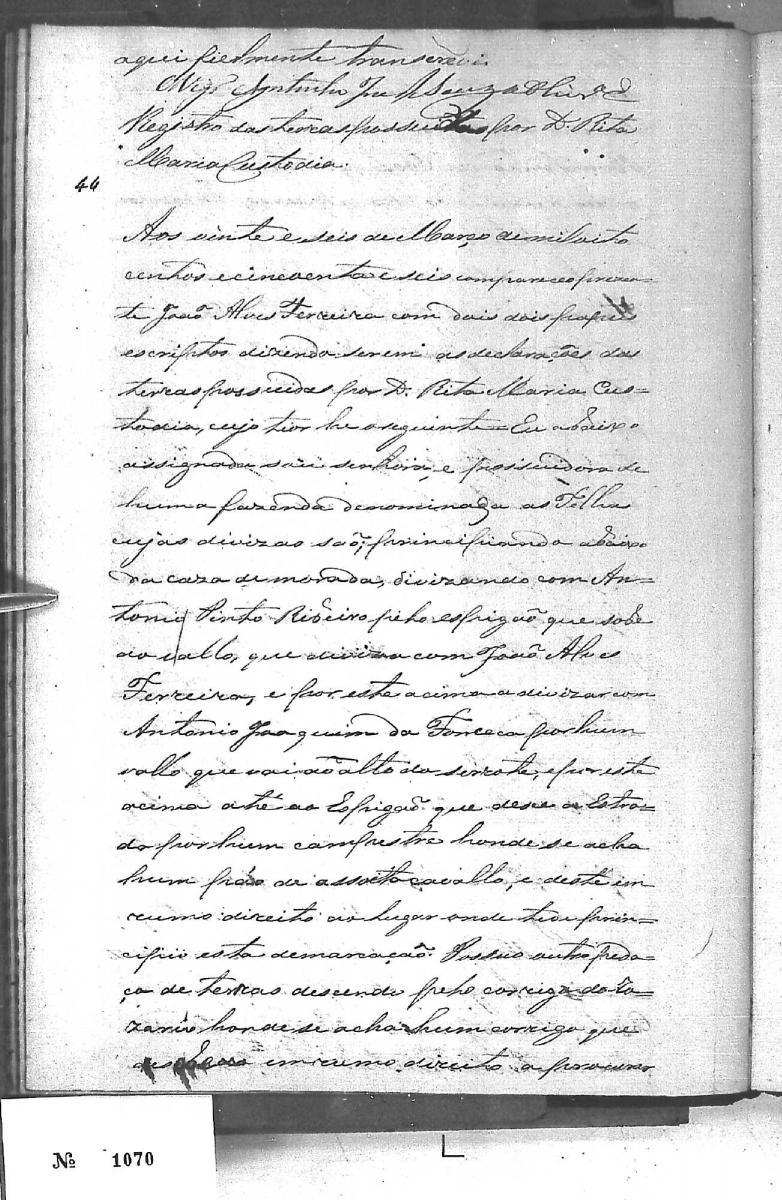 aqui fielmente transcrevi.
Vigr.º Antonio José de Souza Olivr.ª
Registro das terras possuidas por D. Rita
Maria Custodia.
44
Aos vinte e seis de Março de mil oito
centos e cincoenta e seis compareceo prezen-
te João Alves Ferreira com dois dois papeis
escriptos dizendo serem as declarações das
terras possuidas por D. Rita Maria Cus-
todia, cujo tior he o seguinte = Eu abaixo
assignada sou senhora, e possuidora de
huma fazenda denominada as Telha
cujas divizao saõ; principiando abaixo
da caza de morada, divizando com An-
tonio Pinto Ribeiro pelo espigaõ que sobe
ao vallo, que diviza com Joaõ Alves
Ferreira, e por este acima a divizar com
Antonio Joaquim da Fonceca por hum
vallo que vai ao alto do serrote, e por este
acima até ao Espigaõ que desce a Estra-
da por hum campestre honde se acha
hum páo de assoita cavallo, e deste em
rumo direito ao lugar onde teve prin-
cipio esta demarcaçaõ. Possuo outro peda-
ço de terras descendo pelo corrigo do Ro-
zario honde se acha hum corrigo que
em rumo direito a procurar
Nº 1070